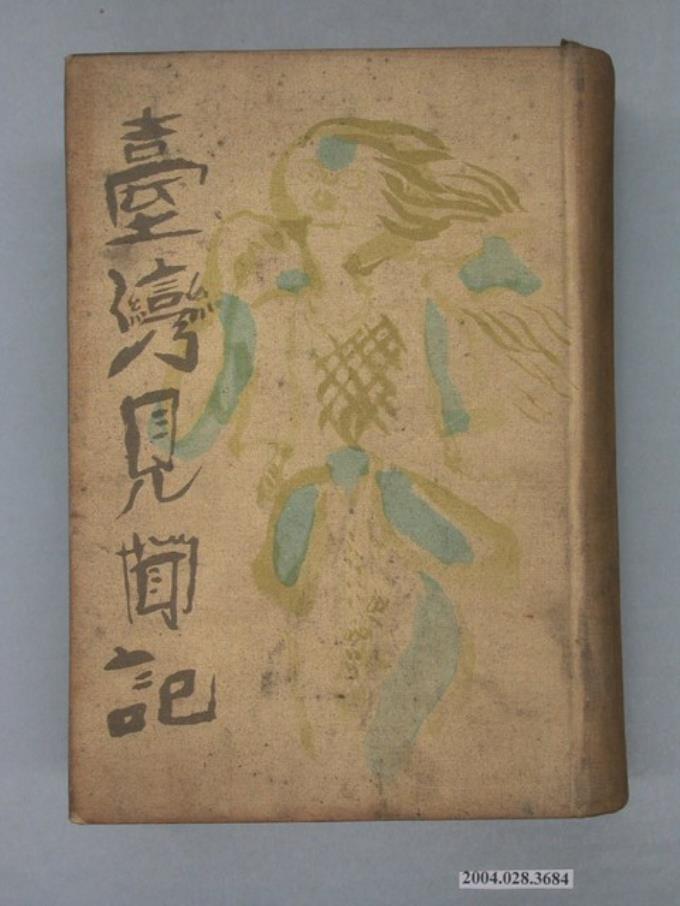 臺灣見聞記
2004.028.3684